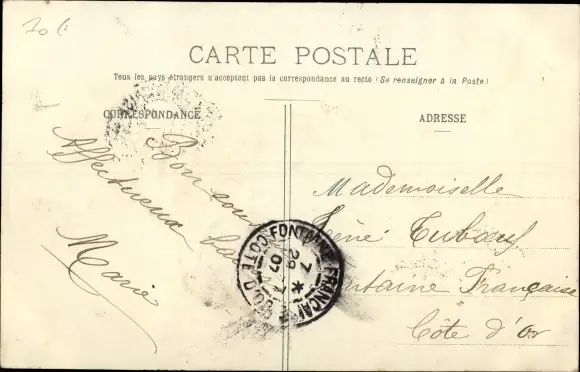 70 c
CARTE POSTALE
Tous les pays étrangers n'acceptent pas la correspondance au recto (Se renseigner à la Poste)
CORRESPONDANCE
ADRESSE
Bon
Affectueux
Marie
Mademoiselle
Fontaine Française
Côte d'or
FONTAINE-FRANÇAISE
CÔTE D'OR
7
29 -7
07